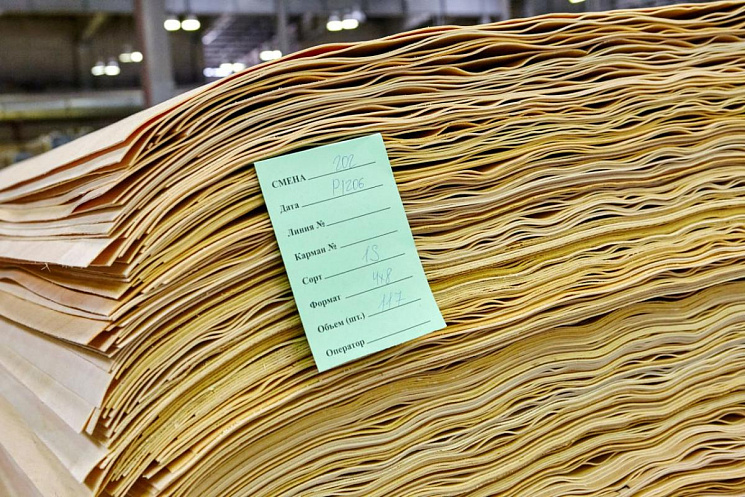 СМЕНА 202
Дата P1206
Линия №
Карман №
Сорт 1S
Формат 4x8
Объем (шт.) 117
Оператор